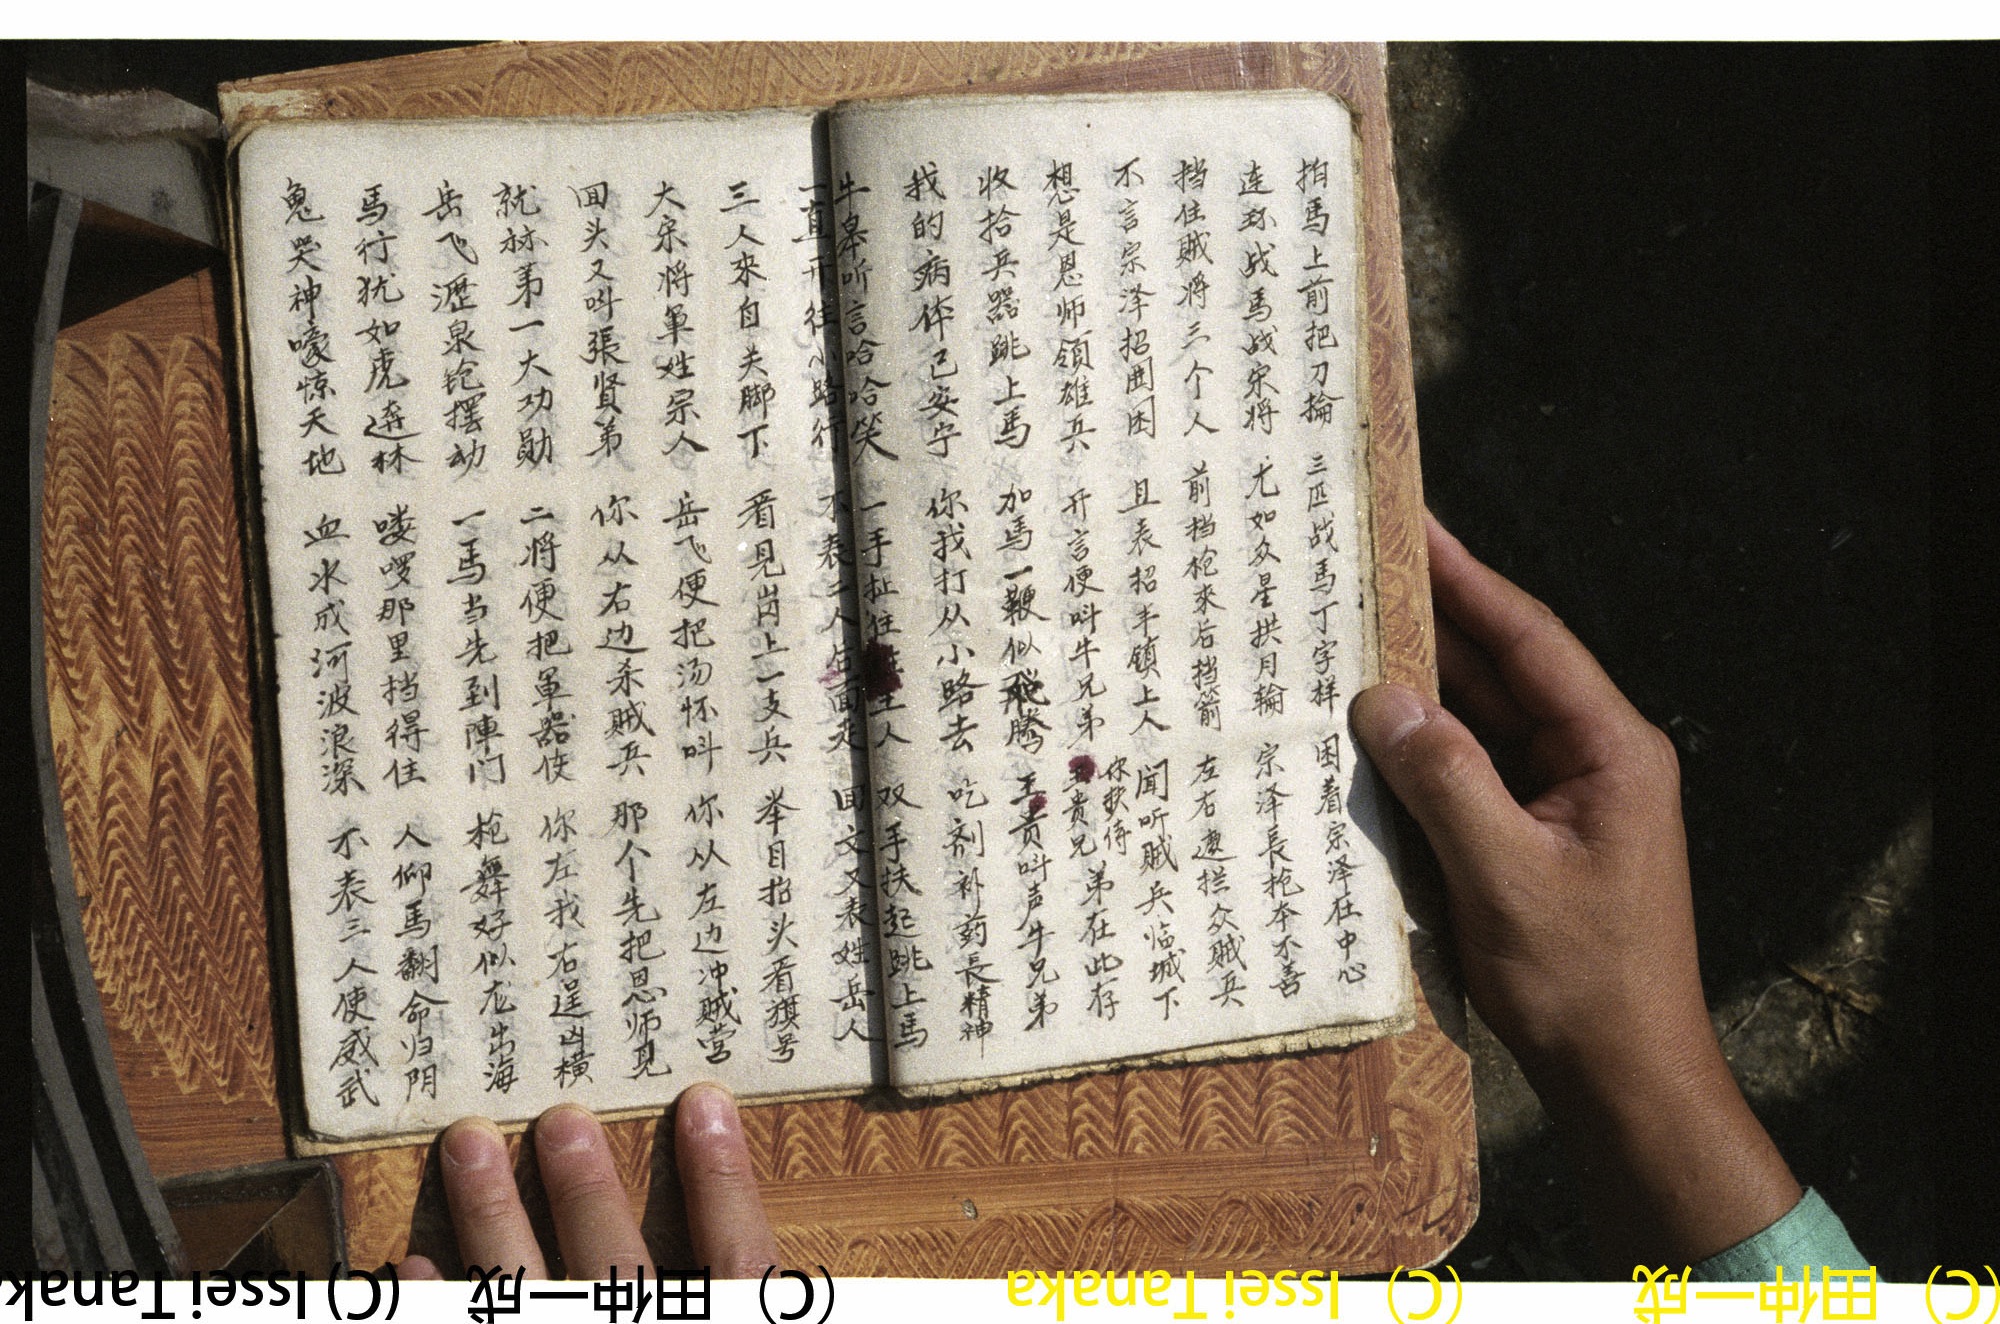 拍馬上前把刀掄 三匹战馬丁字样 困着宗泽在中心
连环战馬战宋将 尤如众星拱月輪 宗泽長枪本不善
挡住贼将三个人 前挡枪來后挡箭 左右遮拦众贼兵
不言宗泽招囲困 且表招丰镇上人 闻听贼兵临城下
想是恩师領雄兵 开言便叫牛兄弟 王贵兄弟在此存
收拾兵器跳上馬 加馬一鞭似飛腾 王贵叫声牛兄弟
我的病体已安宁 你我打从小路去 吃剂补药長精神
牛皋听言哈哈哈笑 一手扯住姓王人 双手扶起跳上馬
一直开往小路行 不表二人后面走 回文又表姓岳人
三人來自夫脚下 看見岗上一支兵 举目抬头看旗号
大宗将軍姓宗人 岳飞便把汤怀叫 你从左边冲贼营
回头又叫張贤弟 你从右边杀贼兵 那个先把恩师見
就称第一大功勋 二将便把軍器使 你左我右逞凶横
岳飞瀝泉枪摆动 一馬当先到陣门 枪舞好似龙出海
馬行犹如虎奔林 喽啰那里挡得住 人仰馬翻命归阴
鬼哭神嚎惊天地 血水成河波浪深 不表三人使威武
(C) Issei Tanaka (C) 田仲一成
(C) Issei Tanaka (C) 田仲一成